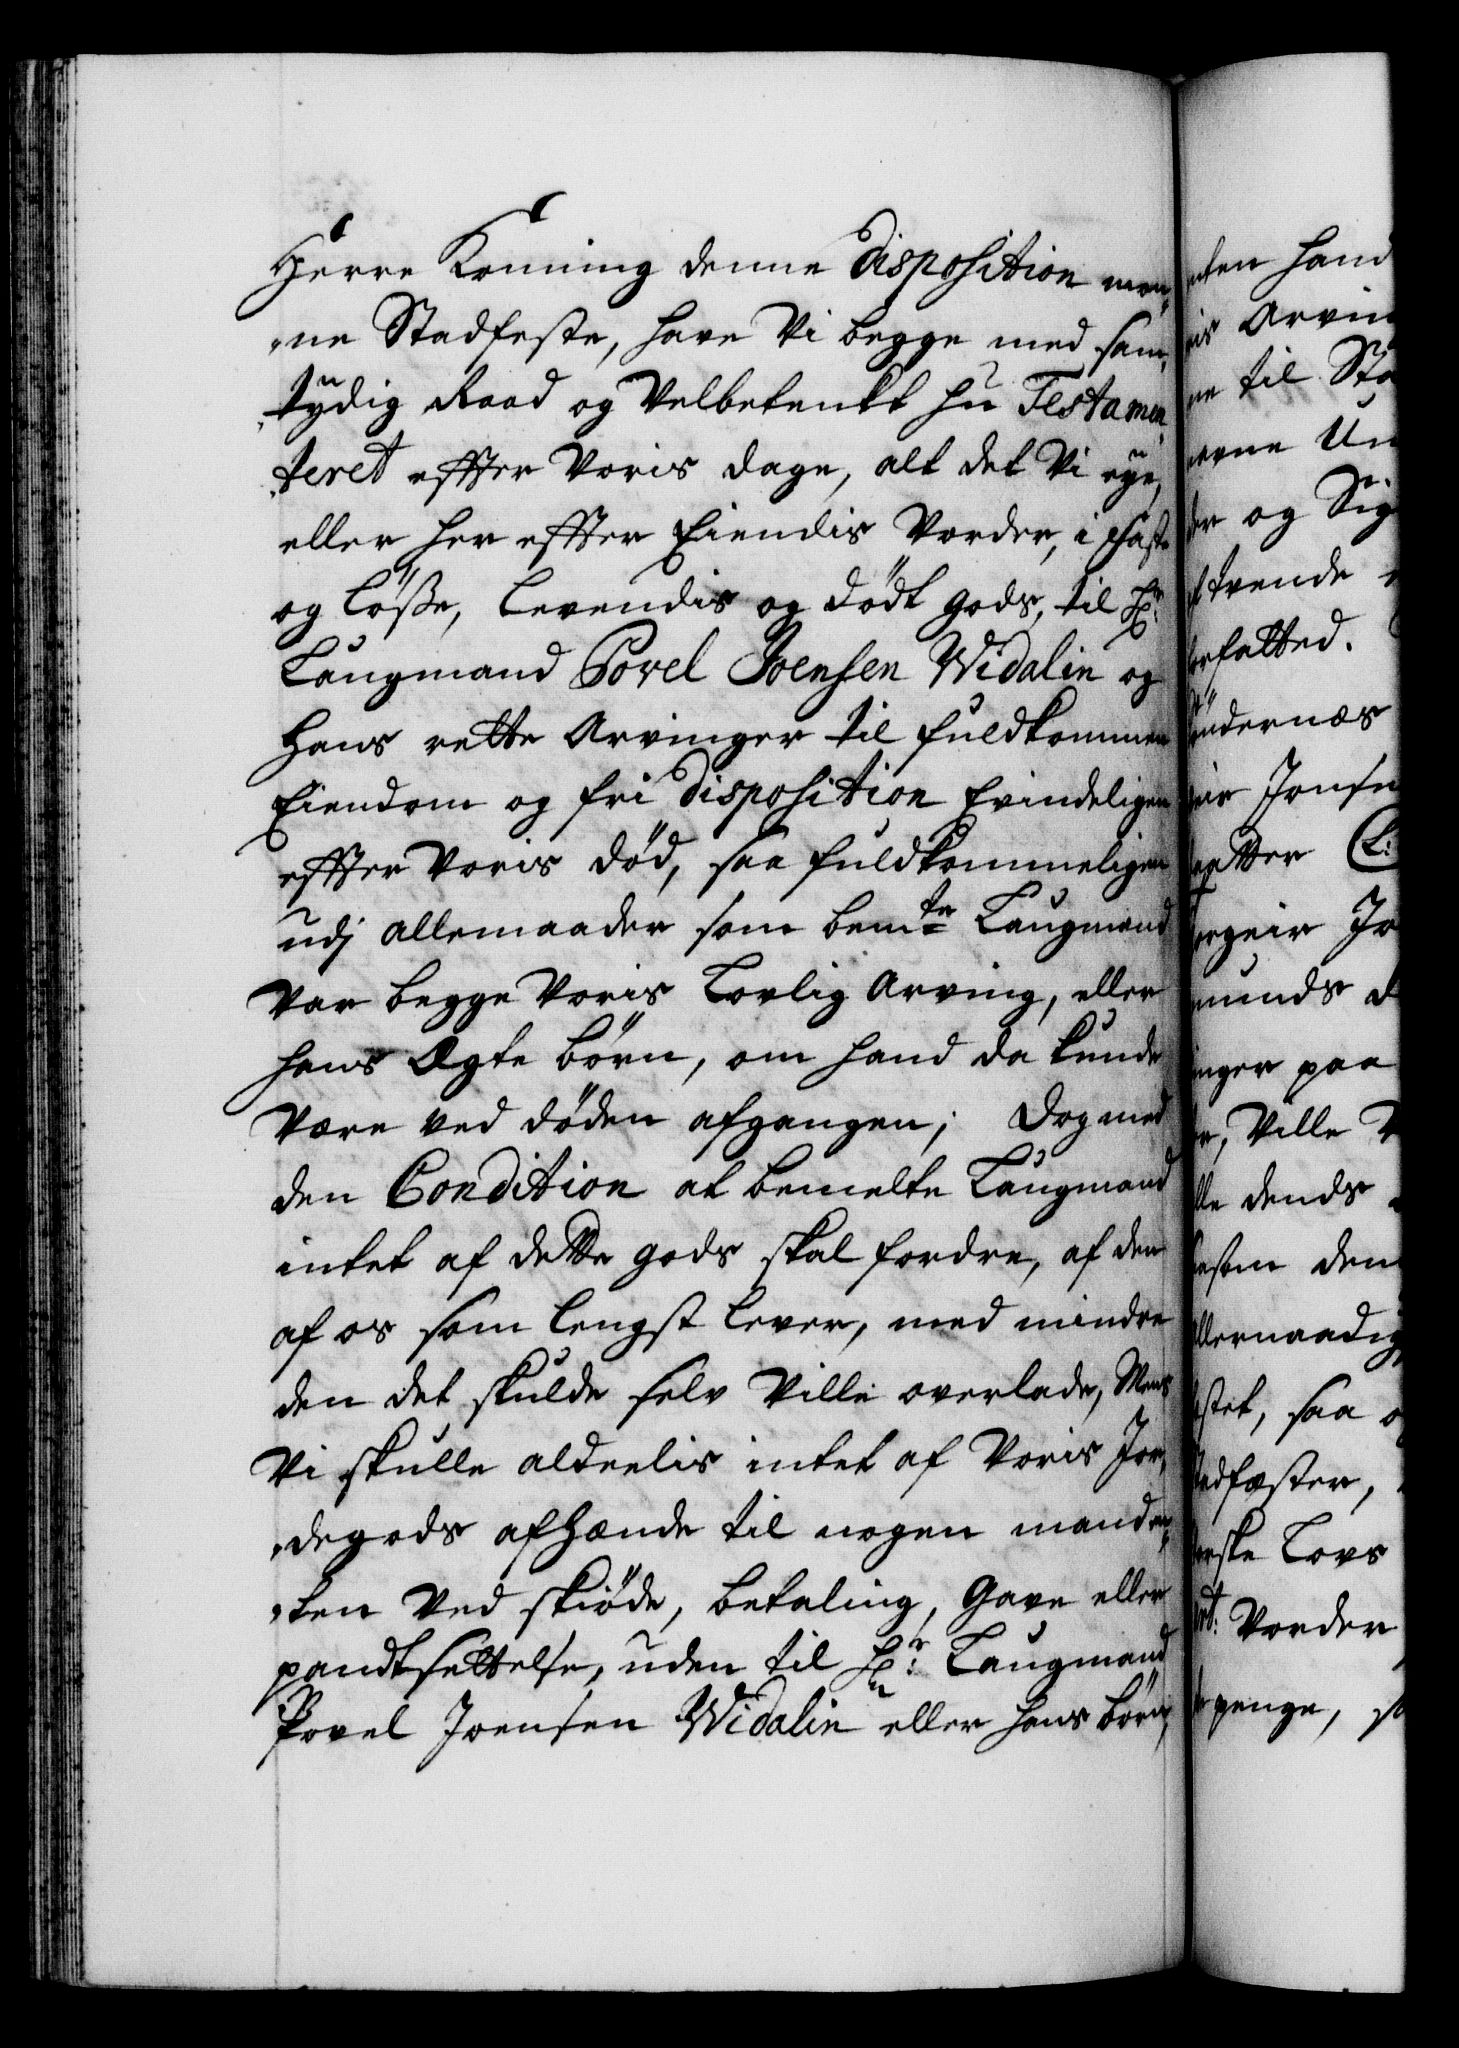 Herre Konning denne disposition mon„
„ne Stadfeste, have Vi begge med sam„
„tydig Raad og Velbetenkt hu Testamen„
„teret effter Voris dage, alt det Vi eye,
eller her effter Eiendis Vorder, i Faste
og Løsse, Levendis og dödt gods, til Hr:
Laugmand Povel Joensen Widalin og
hans rette Arvinger til fuldkommen
Eiendom og fri disposition Evindeligen
effter Voris död, saa fuldkommeligen
udj allemaader som bemte Laugmand
Var begge Voris Lovlig Arving, eller
hans Ægte börn, om hand da kunde
Være ved döden afgangen; Dog med
den Condition at bemelte Laugmand
intet af dette gods skal fordre, af den
af os som Lengst Lever, med mindre
den det skulde selv Ville overlade, Mens
Vi skulle aldeelis intet af Voris Jor„
„degods afhænde til nogen manden„
„ten Ved skiöde, betaling, Gave eller
pandtsettelse, uden til Hr: Laugmand
Povel Joensen Widalin eller hans börn,
hand
Arvin
til Sta
Un
og Sig
tvende
Jonsen
Jo
paa
Ville
dends
den
saa
Lovs
Vorder
penge,